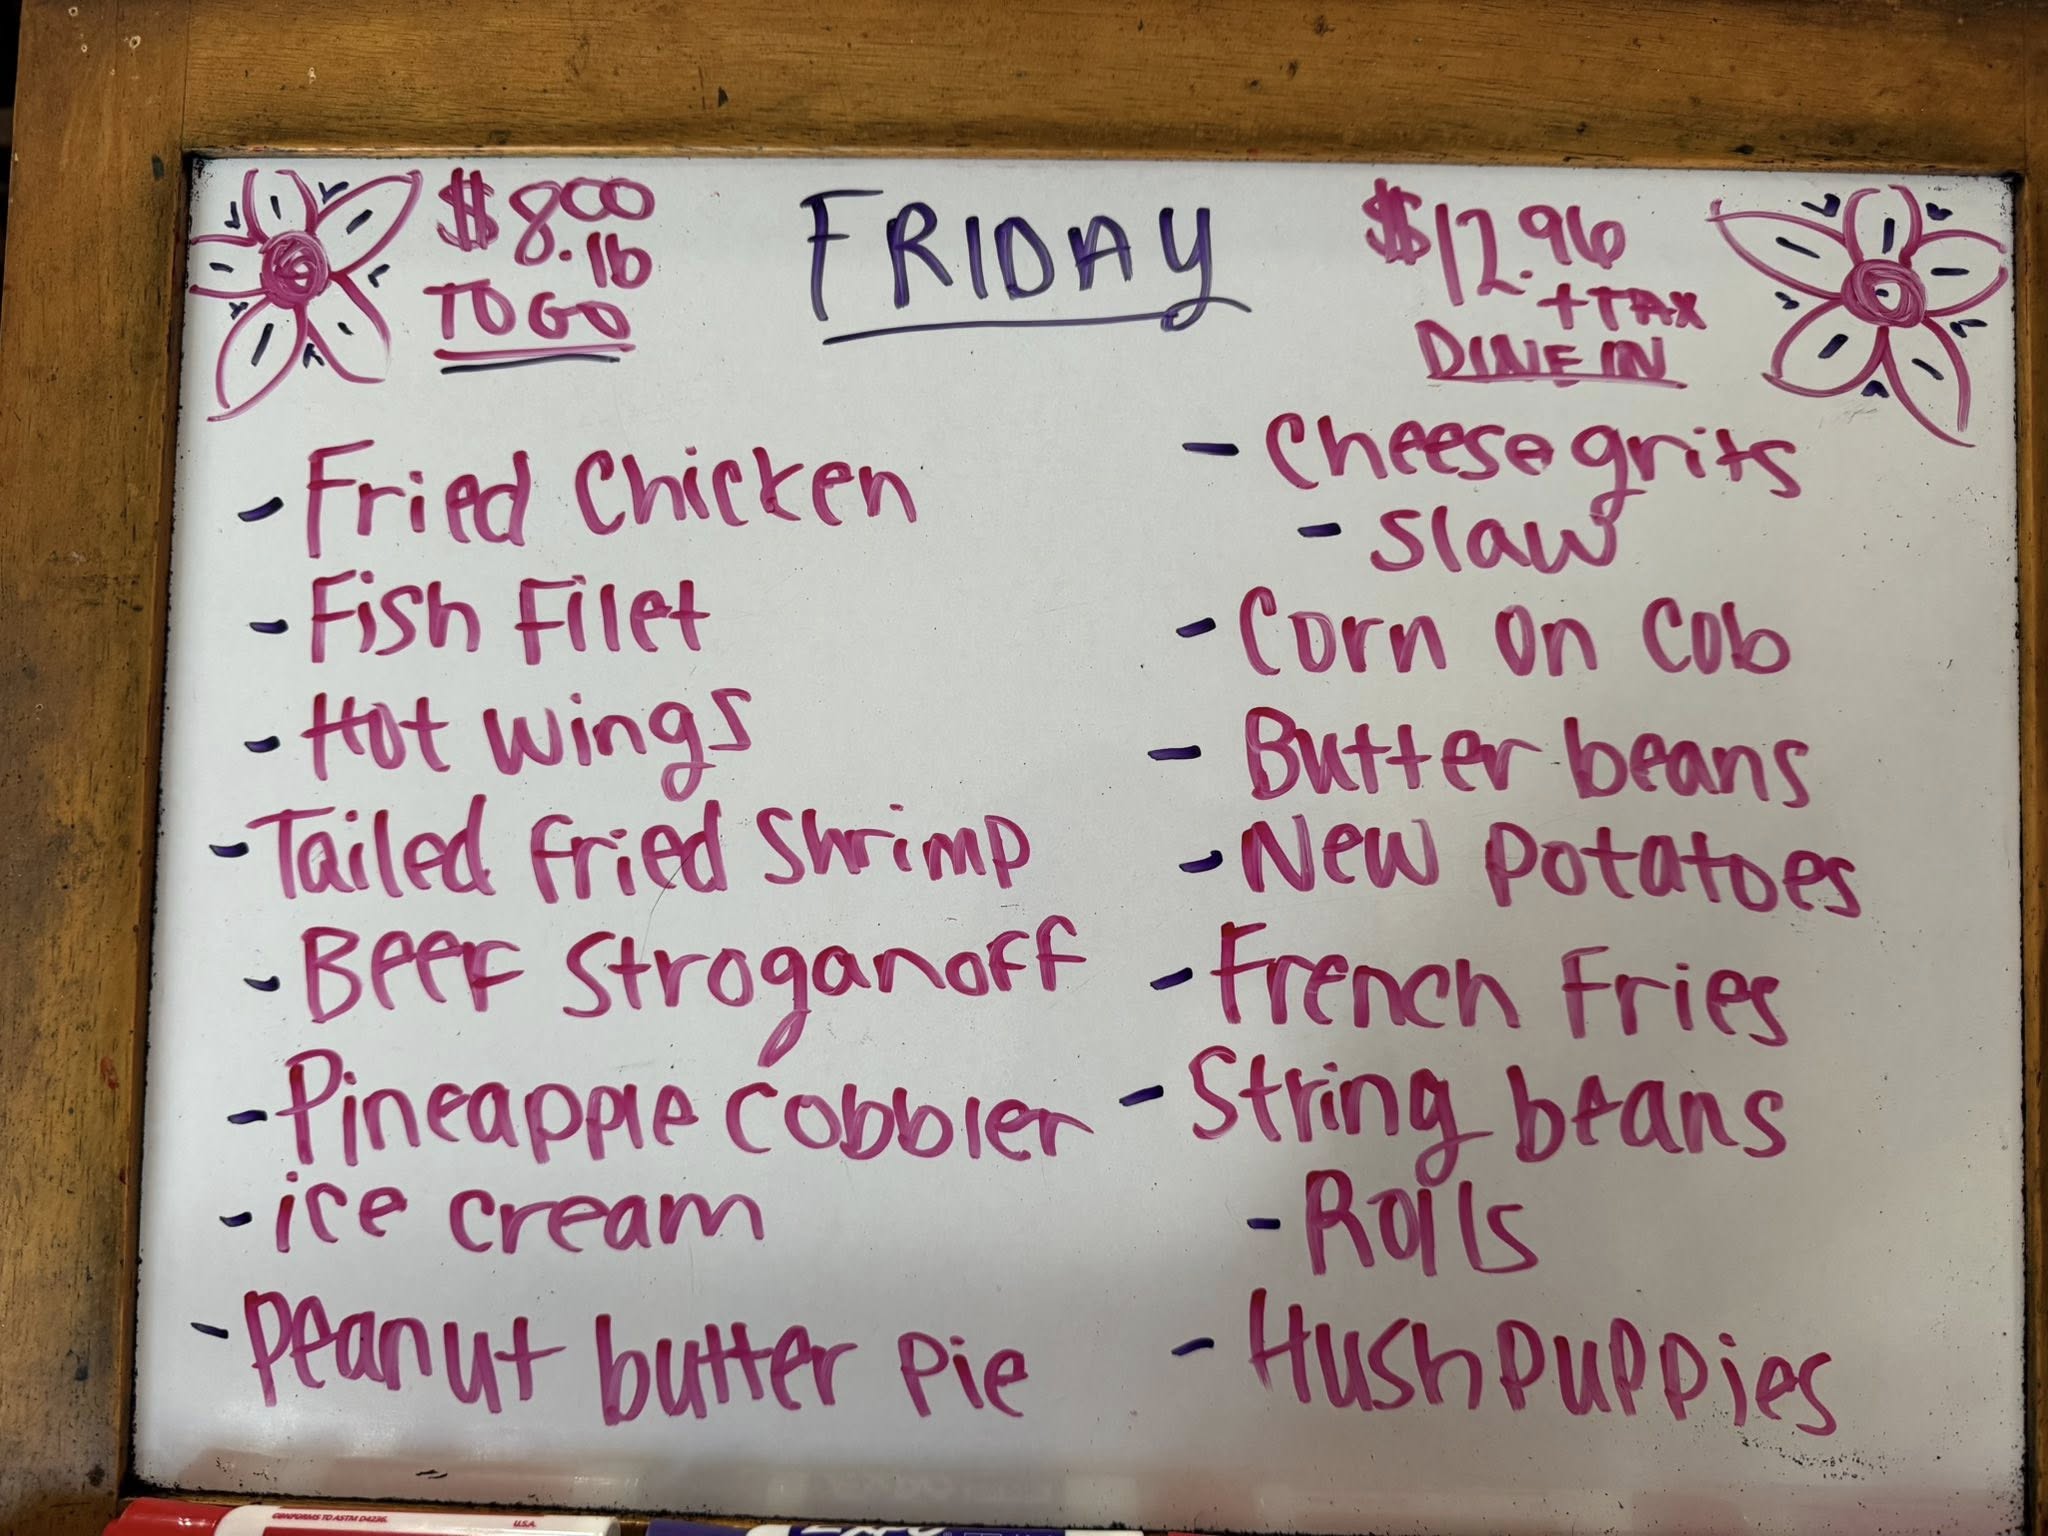 $8.00
.lb
TO GO
FRIDAY
$12.96
+ TAX
DINE IN
- Fried Chicken
- Fish Filet
- Hot wings
- Tailed fried Shrimp
- Beef Stroganoff
- Pineapple Cobbler
- ice cream
- Peanut butter Pie
- Cheese grits
- Slaw
- Corn on Cob
- Butter beans
- New Potatoes
- French Fries
- String beans
- Rolls
- Hushpuppies
CONFORMS TO ASTM D4236. U.S.A.
EXPO